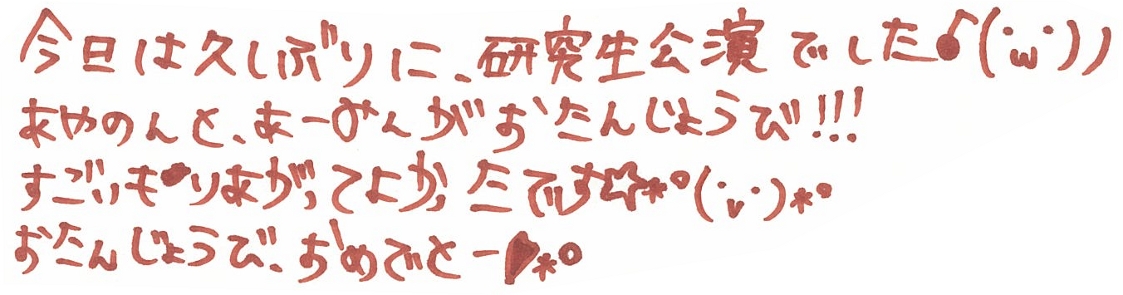 今日は久しぶりに、研究生公演でした♪(・ω・))
あやのんと、あーみんがおたんじょうび!!!
すごいもりあがってよかったです☆*°(・v・)*°
おたんじょうび、おめでとー♥*°